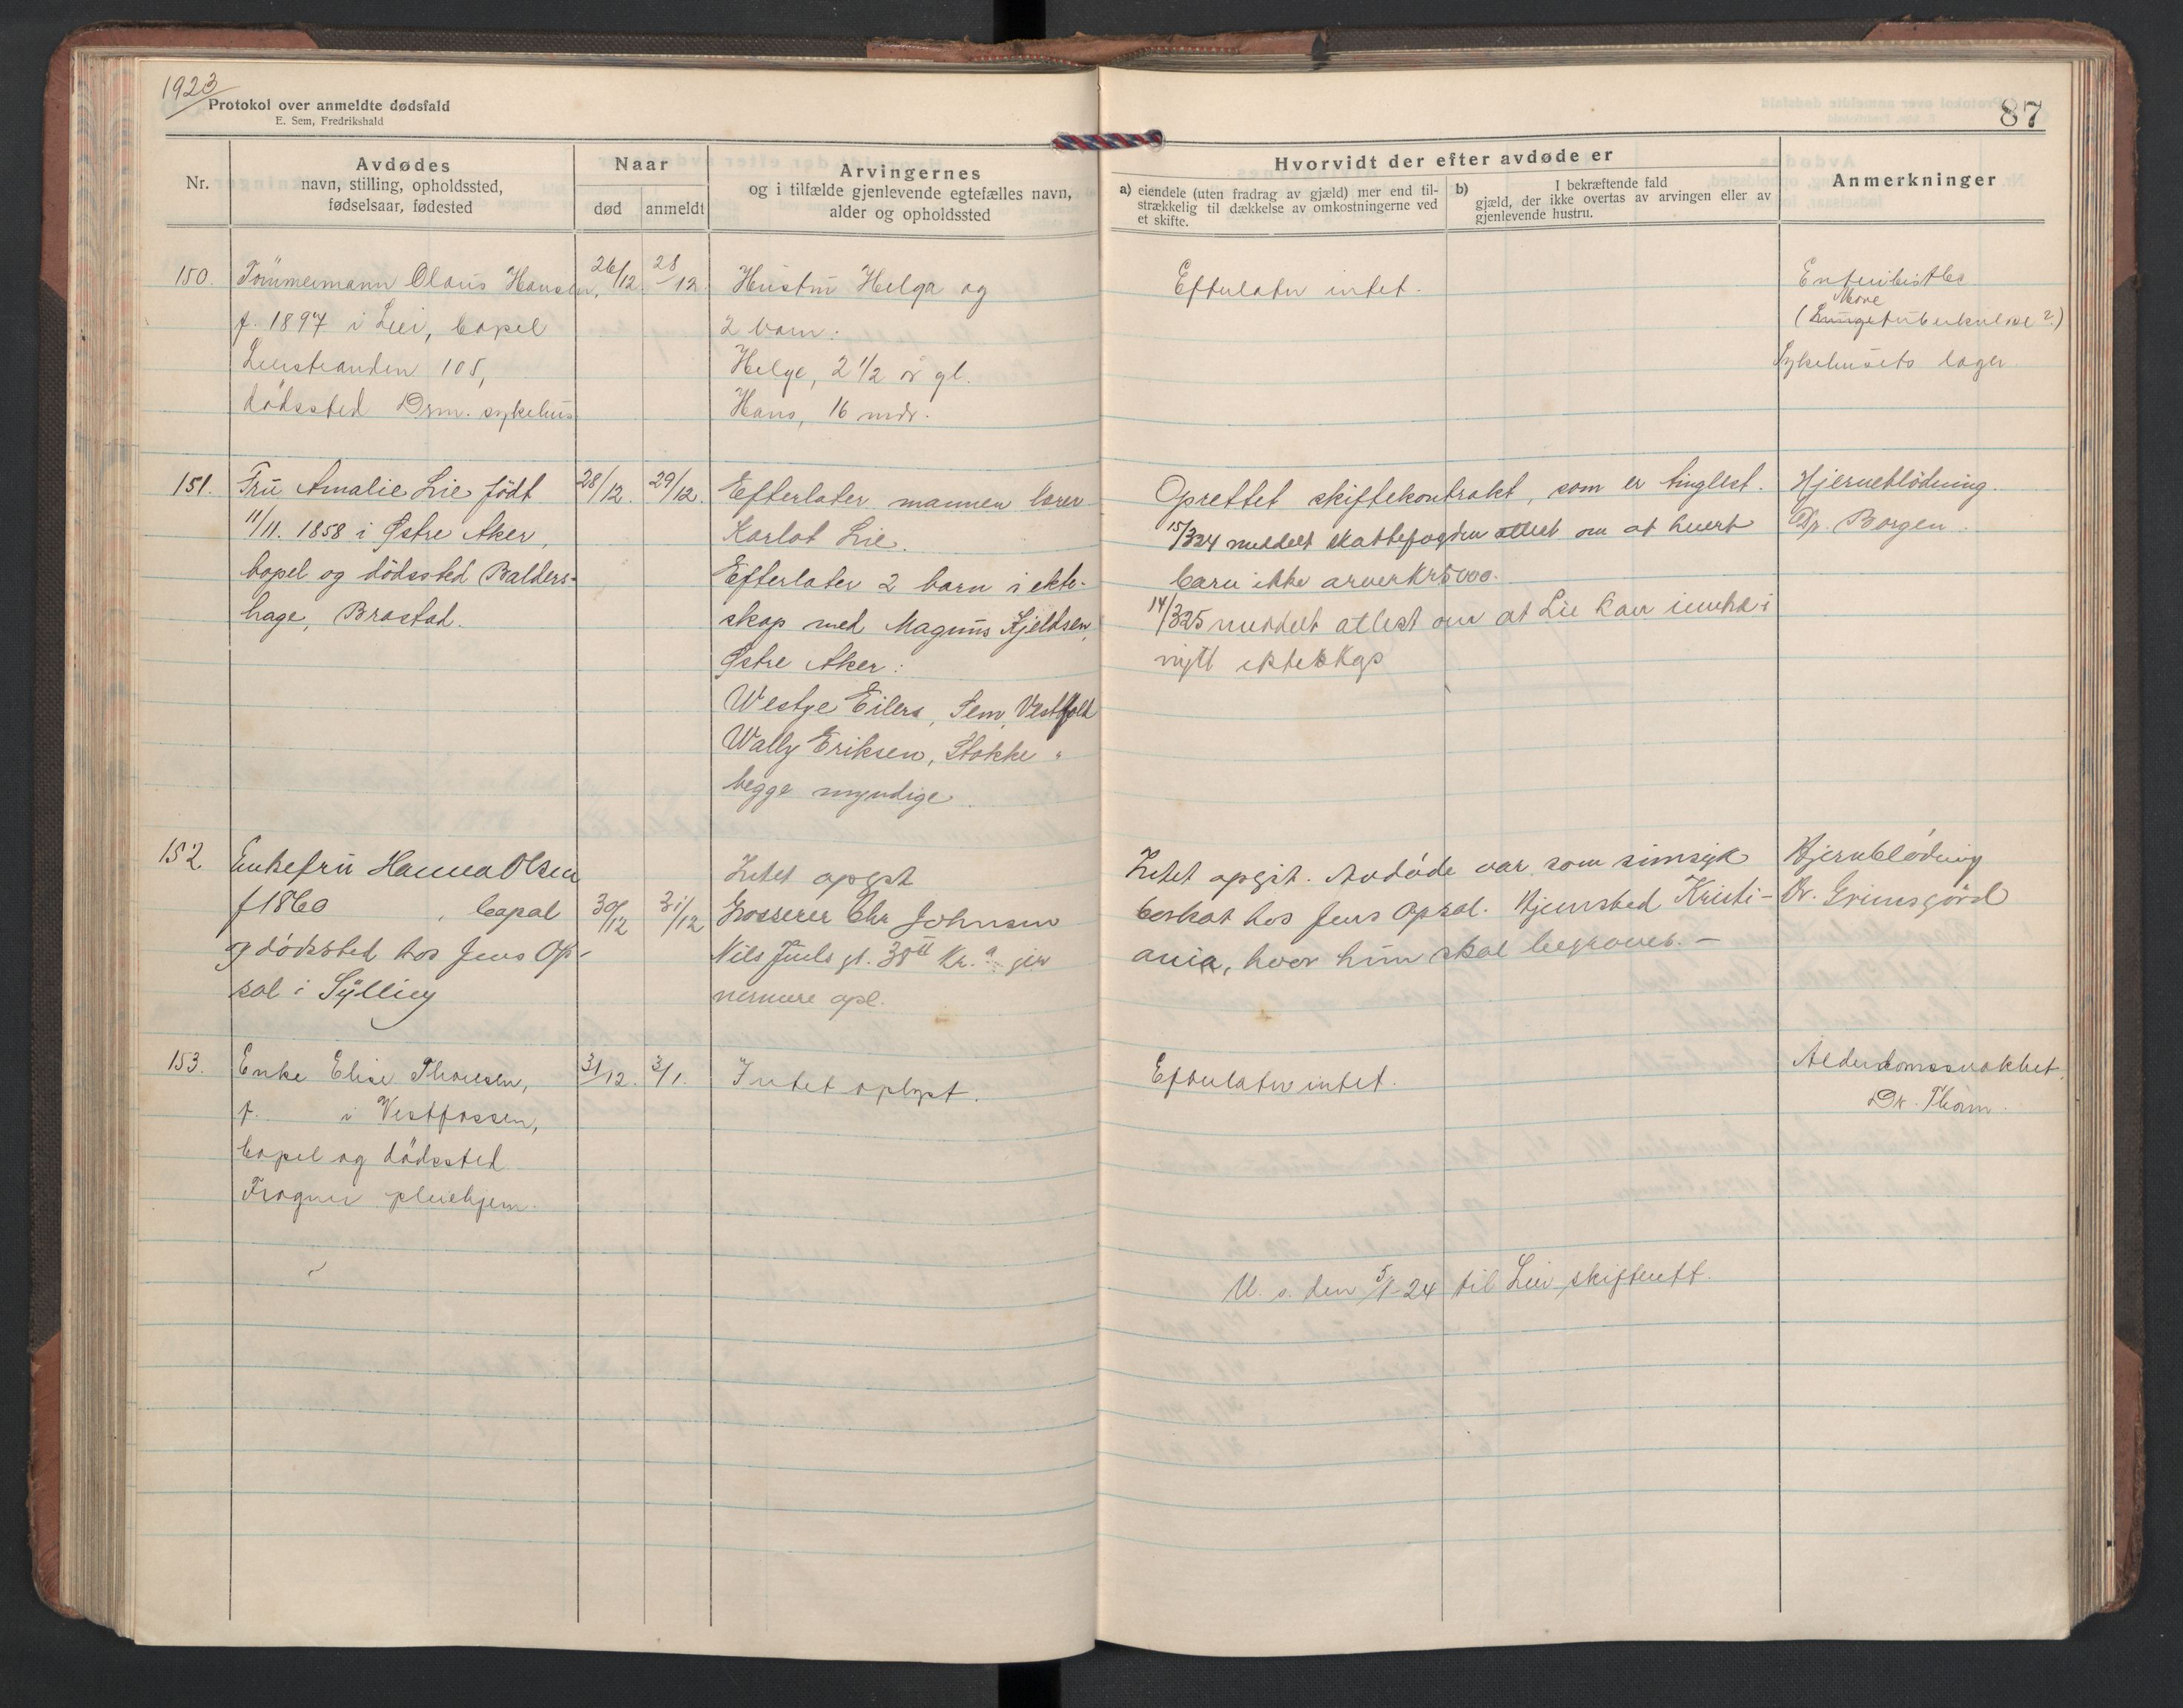 1923
Protokol over anmeldte dødsfald
E. Sem, Fredrikshald
87
Nr.
Avdødes
navn, stilling, opholdssted,
fødselsaar, fødested
Naar
død
anmeldt
Arvingernes
og i tilfælde gjenlevende egtefælles navn,
alder og opholdssted
Hvorvidt der efter avdøde er
a) eiendele (uten fradrag av gjæld) mer end til-
strækkelig til dækkelse av omkostningerne ved
et skifte.
b) I bekræftende fald
gjæld, der ikke overtas av arvingen eller av
gjenlevende hustru.
Anmerkninger
150.
Tömmermann Olaus Hansen,
f. 1897 i Lier, bopel
Lierstranden 105,
dödssted Drm. sykehus
26/12.
28/12.
Hustru Helga og
2 barn:
Helge, 2 1/2 år gl.
Hans, 16 mdr.
Efterlater intet.
Mave
(Lungetuberkulose?)
Sykehusets læger
151.
Frü Amalie Lie födt
11/11. 1858 i Østre Aker,
bopel og dödssted Balders-
hage, Brastad.
28/12.
29/12.
Efterlater mannen lærer
Karlot Lie.
Efterlater 2 barn i ekte-
skap med Magnus Kjeldsen,
Østre Aker:
Westye Eilers, Sem, Vestfold
Wally Eriksen, Stokke "
begge myndige.
Oprettet skiftekontrakt, som er tinglest.
15/3 24 meddelt skattefogden attest om at hvert
barn ikke arver Kr 5000.
14/3 25 meddelt attest om at Lie kan inntre i
nytt ekteskap
Hjerneblödning.
Dr. Borgen.
152
Enkefrü Hanna Olsen
f 1860 , bopal
og dödssted hos Jens Op-
sal i Sylling
30/12
31/12
Intet opgit
Grosserer Chr Johnsen
Nils Juels gt. 38 II Kr.a gir
nermere opl.
Intet opgit. Avdöde var som sinsyk
bortsat hos Jens Opsal. Hjemsted Kristi-
ania, hvor hün skal begraves. -
Hjerneblödning
Dr. Grimsgård
153.
Enke Elise Thoresen,
f. i Vestfossen,
bopel og dödssted
Frogner pleiehjem.
31/12.
3/1.
Intet oplyst.
Efterlater intet.
Alderdomssvakhet.
Dr. Thorn.
U. s. den 5/1-24 til Lier skifterett.